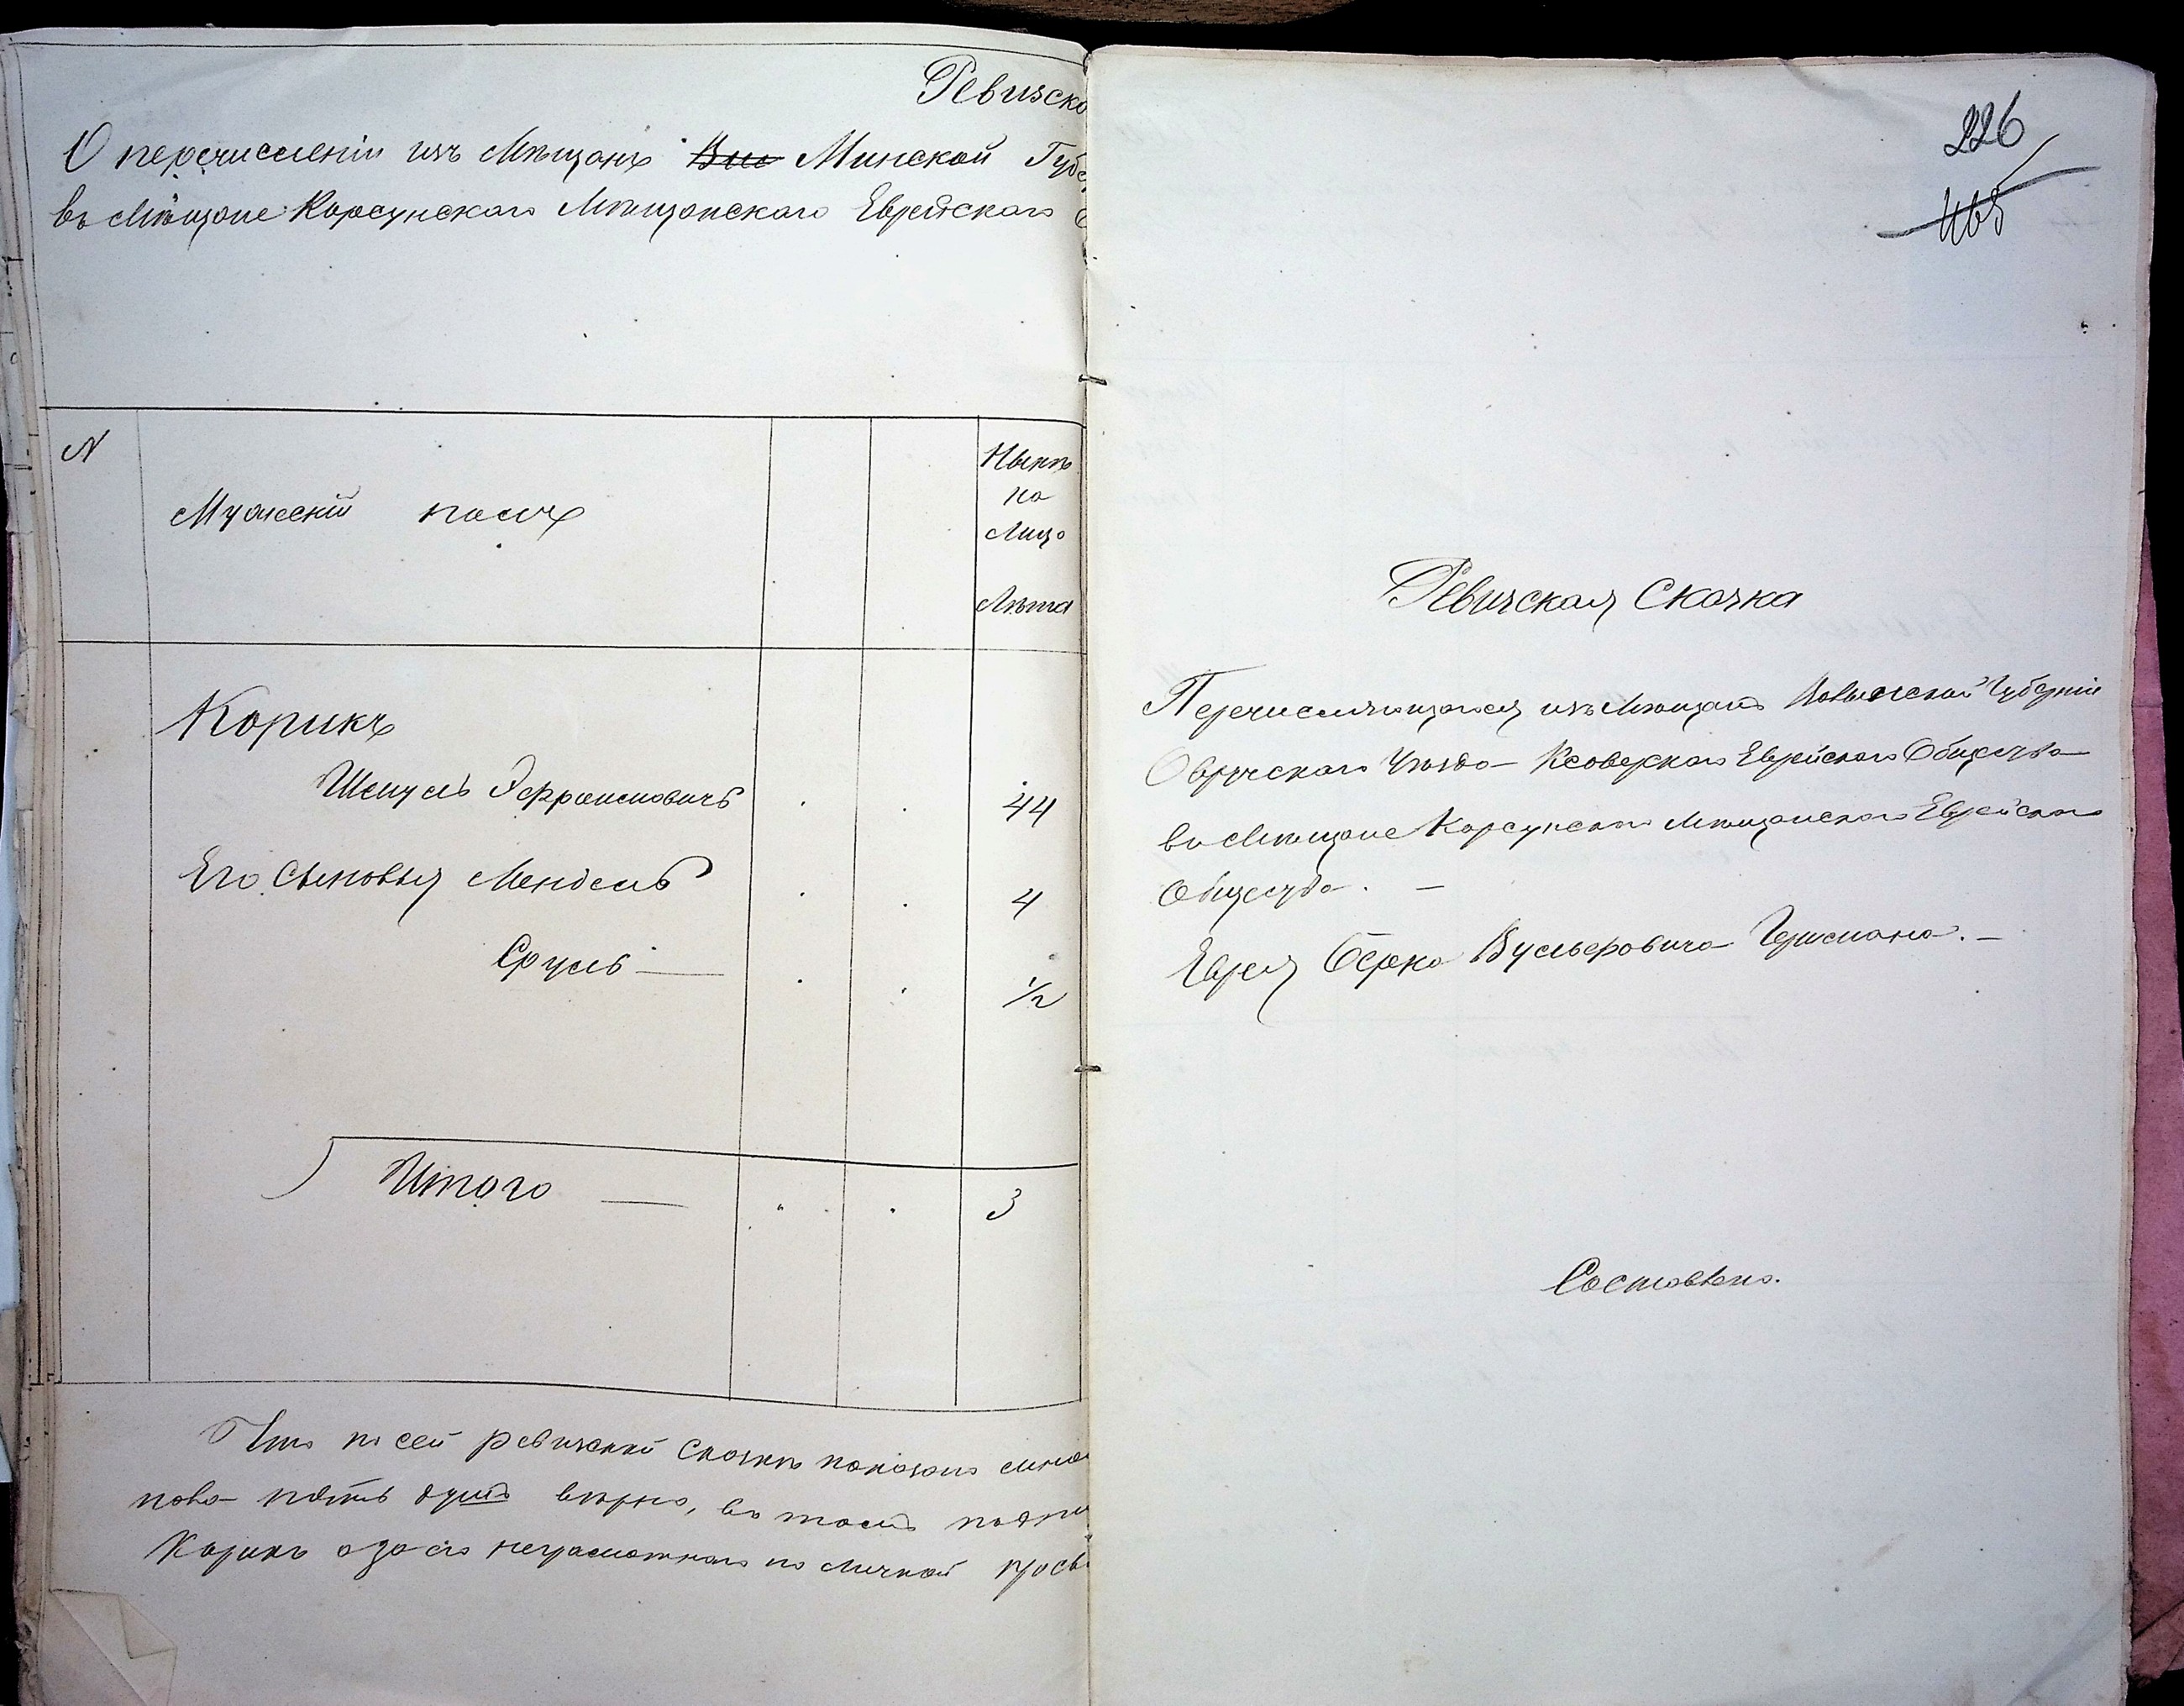 Ревизско
О перечисленіи изъ Мѣщанъ Минской Губе
въ Мѣщане Корсунскаго Мѣщанскаго Еврейскаго
N
Мужескій полъ
Нынѣ
на
Лицо
Лѣта
Корикъ
Шмуль Эфроимовичъ 44
Его Сыновья Мендель 4
Сруль 1/2
Итого 3
Что по сей ревизкой Сказкѣ показано
пола пять душъ вѣрно, въ томъ подпи
Корикъ а за его неграмотнаго по личной прось
226
465
Ревизская Сказка
Перечисляющагося изъ Мѣщанъ Волынской Губерніи
Овручскаго Уѣзда Ксаверскаго Еврейскаго Общества
въ Мѣщане Корсунскаго Мѣщанскаго Еврейскаго
Общества. —
Еврея Берка Вульфовича Герисмана. —
Составлена.